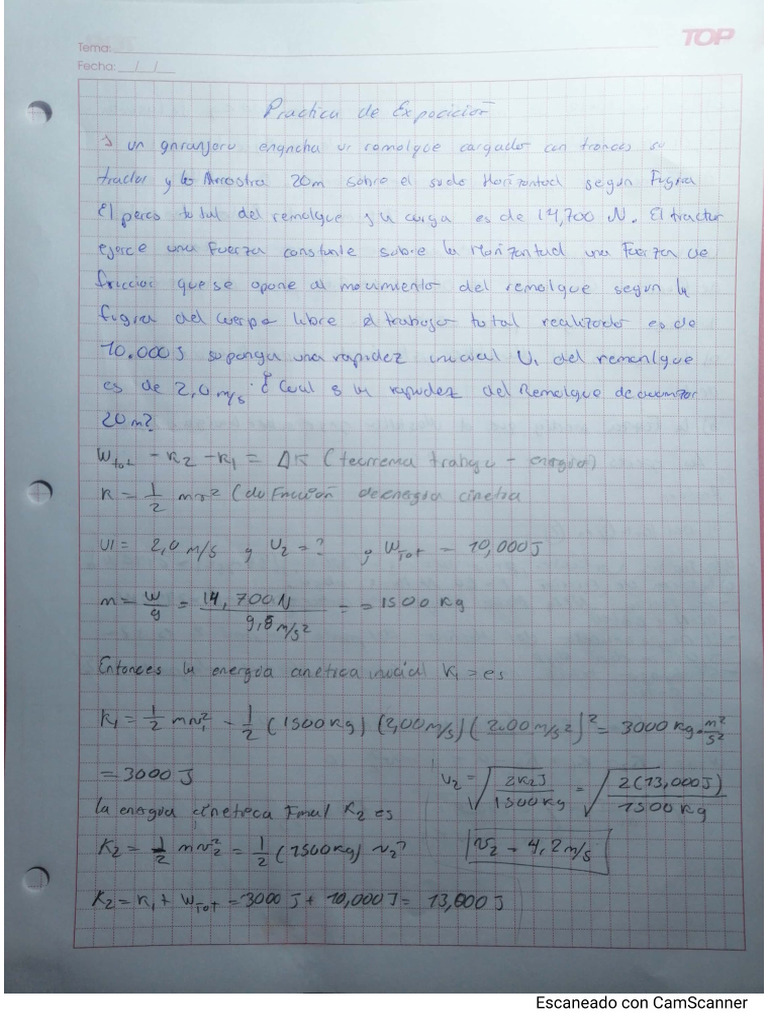 TOP
Tema:
Fecha: / /
Practica de Exposición
un granjero engancha un remolque cargador con troncos su
tractor y los Arrastra 20m sobre el suelo Horizontal según Figura
El peso total del remolque y su carga es de 14,700 N. El tractor
ejerce una fuerza constante sobre la Horizontal una Fuerza de
friccion que se opone al movimiento del remolque segun la
figura del cuerpo libre el trabajo total realizado es de
10.000 J suponga una rapidez inicial U₁ del remolque
es de 2,0 m/s. ¿Cual es la rapidez del Remolque de avanzar
20m?
Wtot - K2 - K1 = ΔK (teorema trabajo - energia)
K = 1/2 mv² (definición de energia cinetica
U1 = 2,0 m/s , U2 = ? , WTot = 10,000 J
m = w/g = 14,700 N / 9,8 m/s² = = 1500 kg
Entonces la energia cinetica inicial K1 = es
K1 = 1/2 mv1² - 1/2 (1500 kg) (2,00 m/s) (2.00 m/s²)² = 3000 kg · m²/s²
= 3000 J
U2 = √(2K2J / 1500 kg) = √(2(13,000 J) / 1500 kg)
la energia cinetica Final K2 es
K2 = 1/2 mv2² = 1/2 (1500 kg) v2?
v2 - 4,2 m/s
K2 = K1 + WTot = 3000 J + 10,000 J = 13,000 J
Escaneado con CamScanner